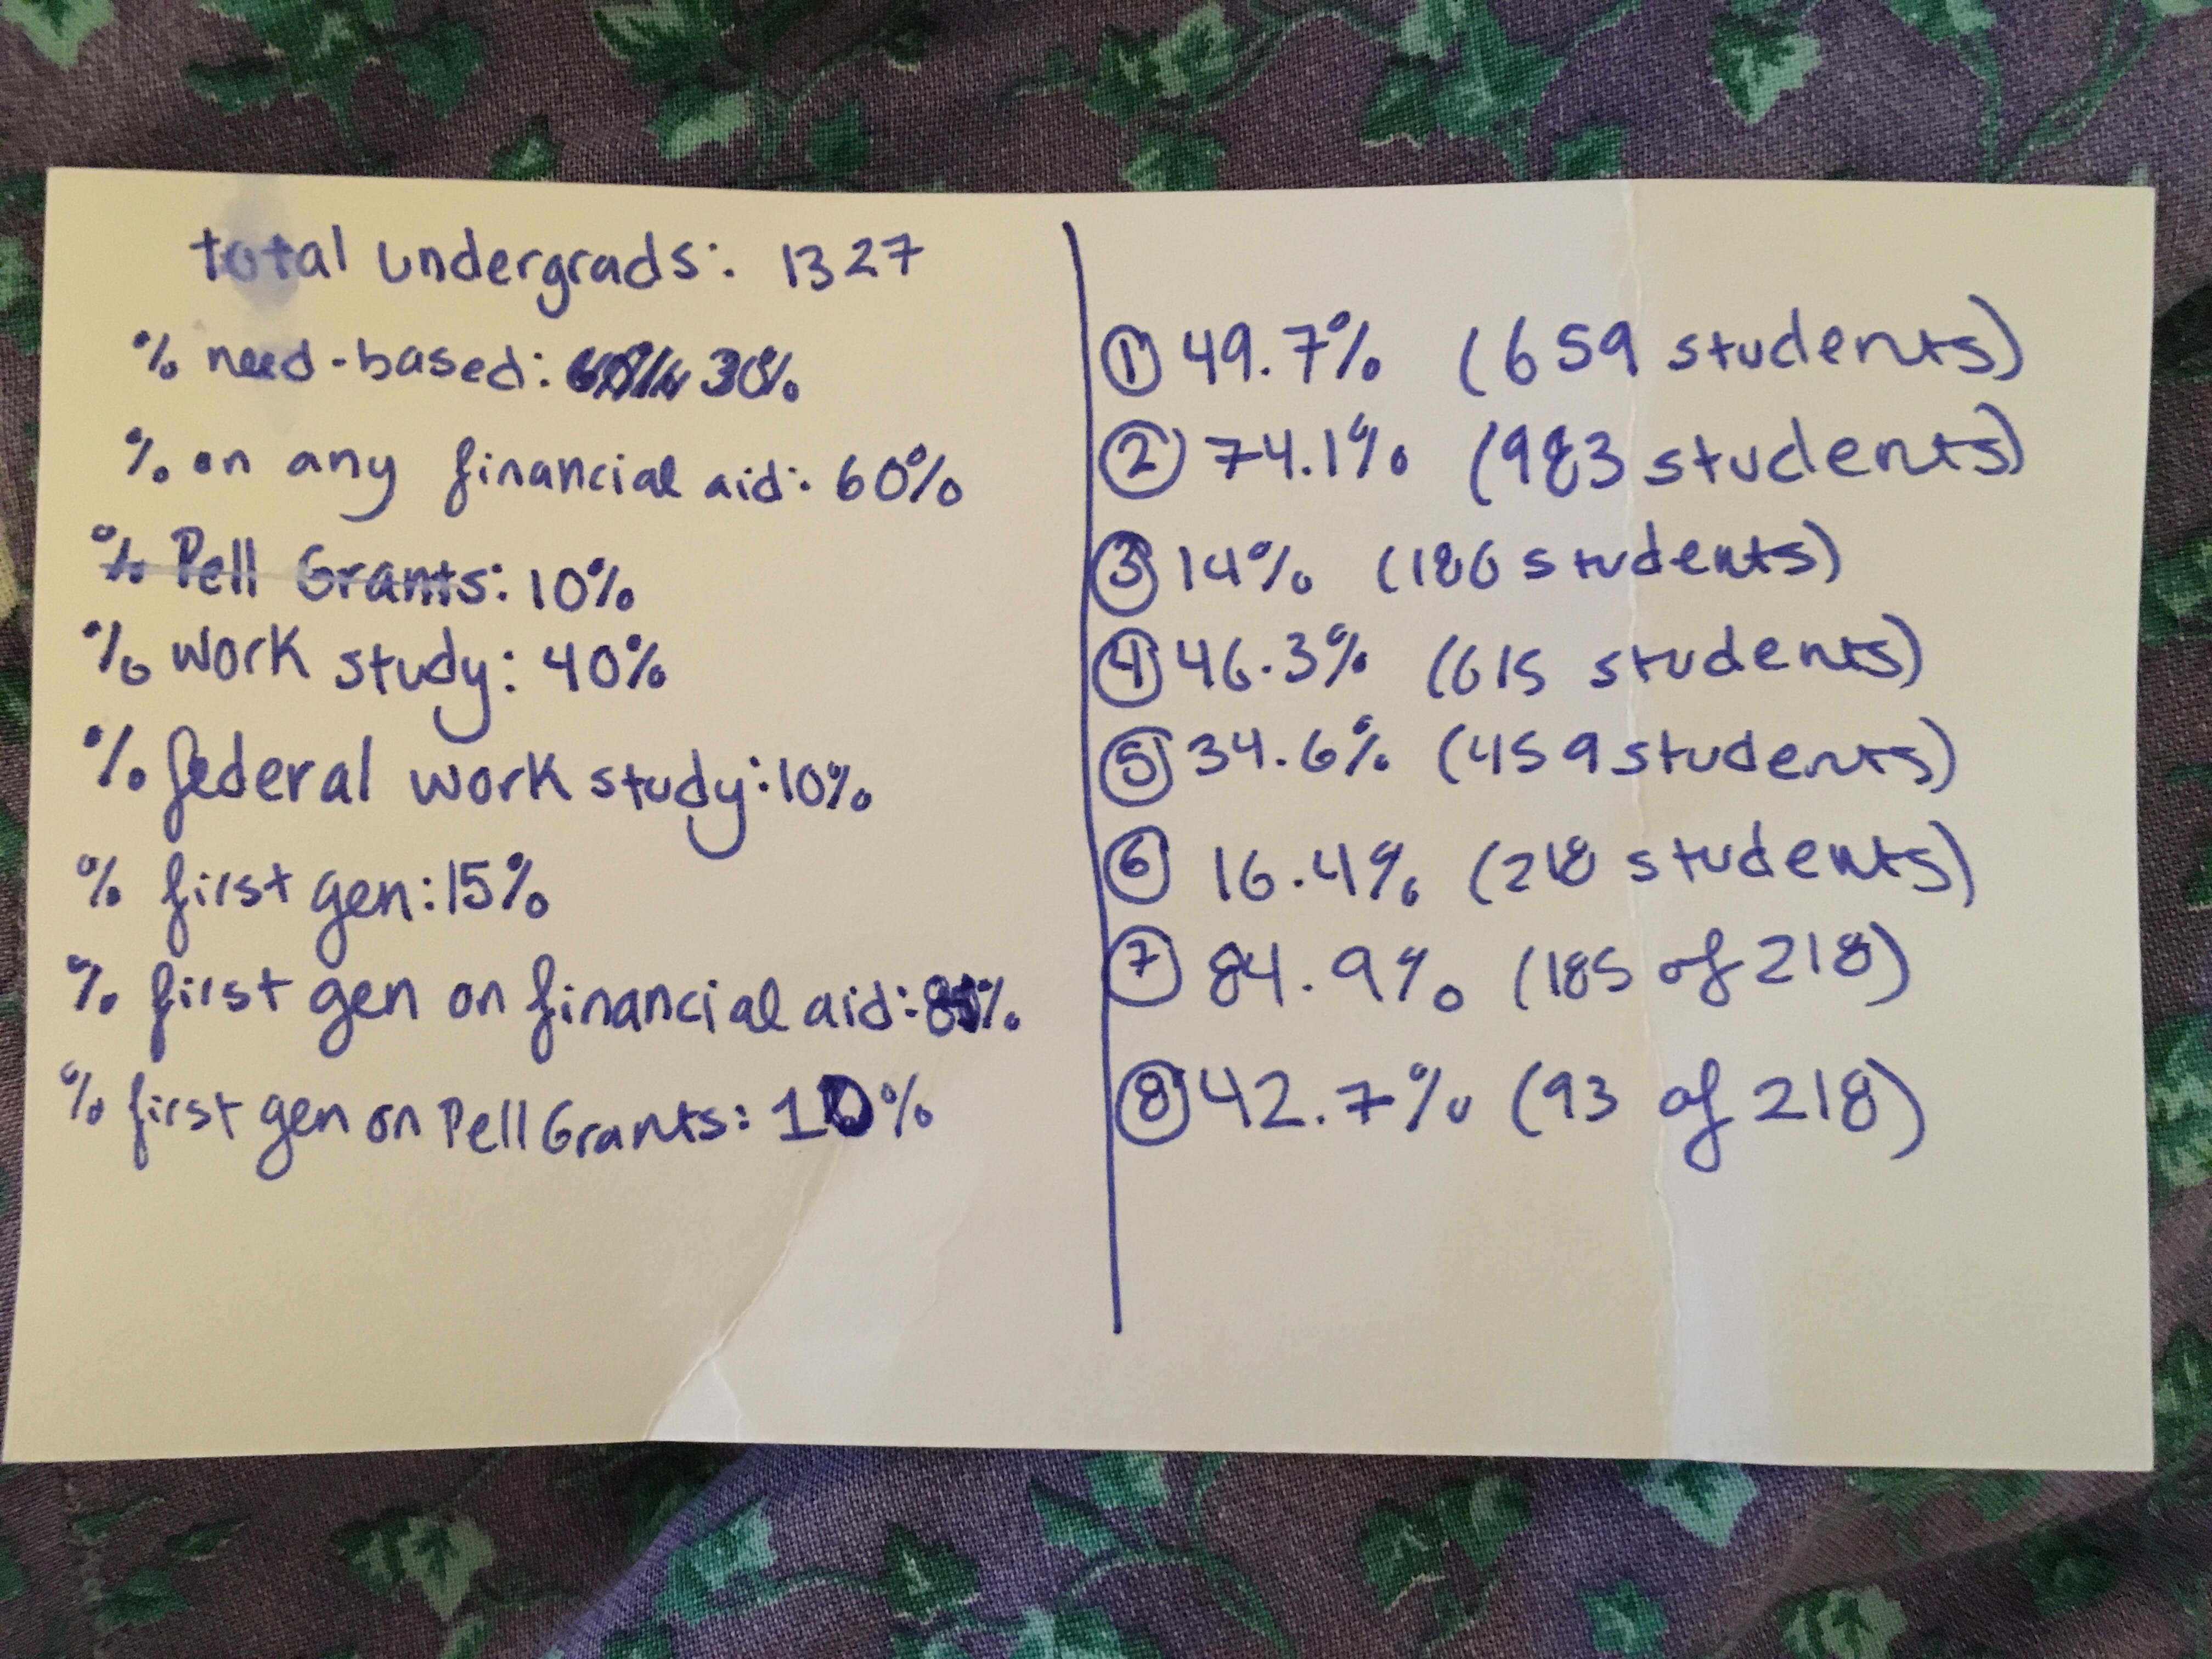 total undergrads: 1327
% need-based: 30%
% on any financial aid: 60%
% Pell Grants: 10%
% work study: 40%
% federal work study: 10%
% first gen: 15%
% first gen on financial aid: 
% first gen on Pell Grants: 10%
① 49.7% (659 students)
② 74.1% (983 students)
③ 14% (186 students)
④ 46.3% (615 students)
⑤ 34.6% (459 students)
⑥ 16.4% (218 students)
⑦ 84.9% (185 of 218)
⑧ 42.7% (93 of 218)